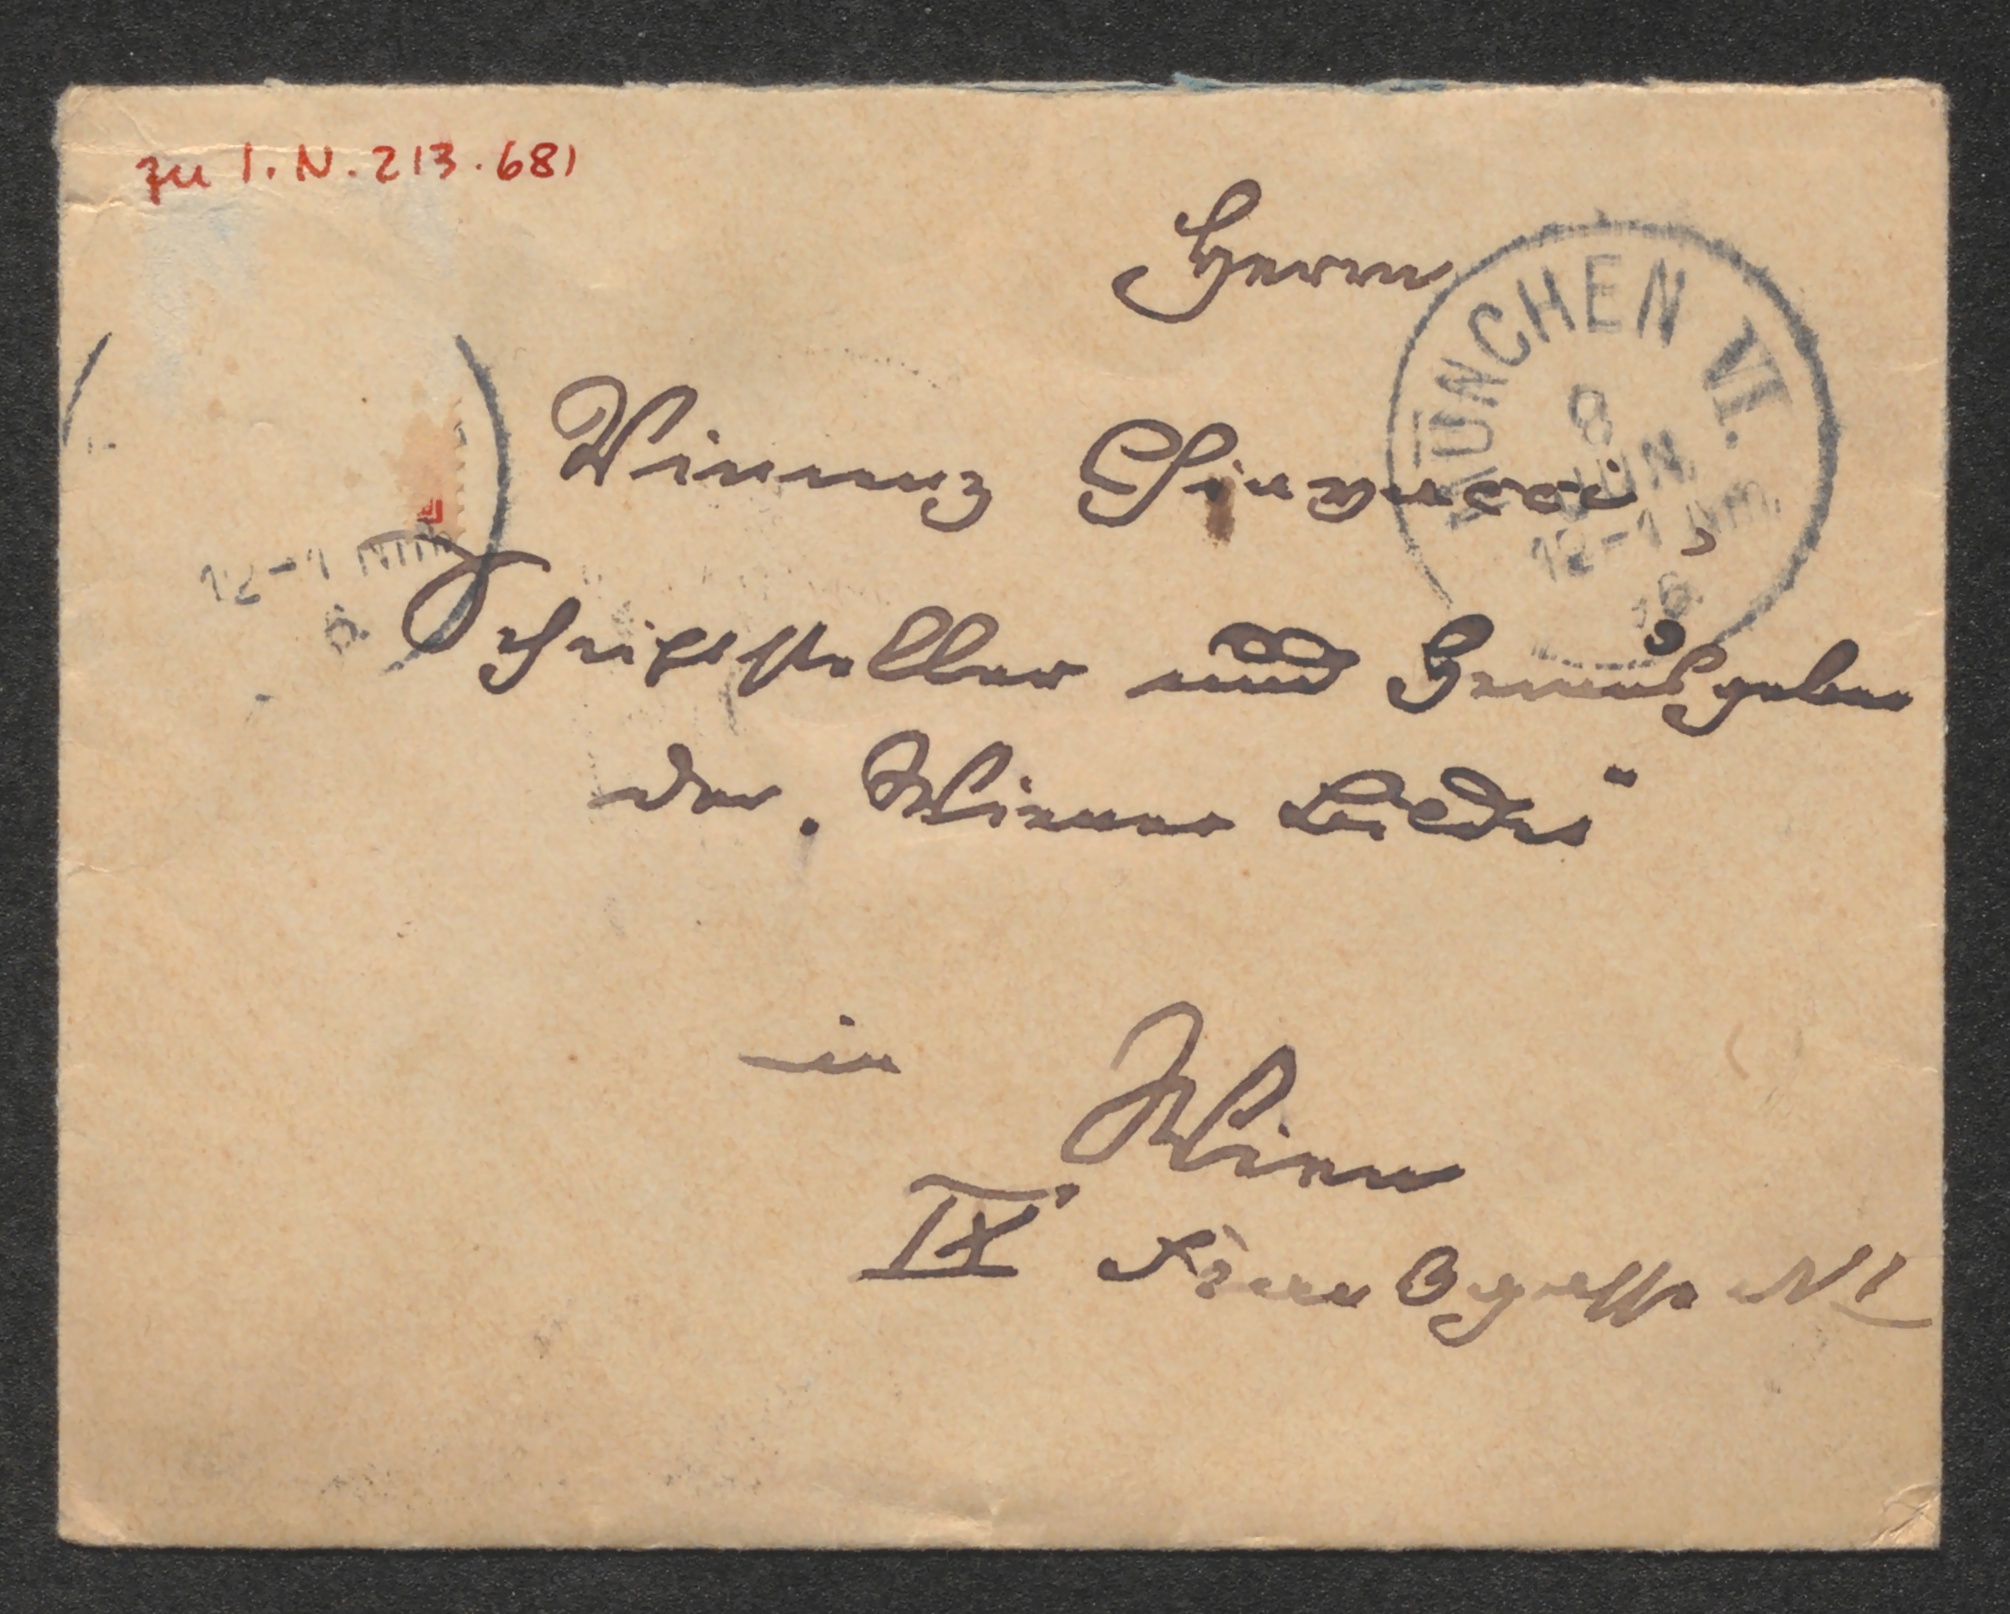 zu I.N. 213.681
Herrn
MÜNCHEN VI.
8
JUN.
12-1 Nm.
Vincenz Chiavacci,
Schriftsteller und Herausgeber
der „Wiener Bilder“
12-1 Nm
in Wien
IX. Frankgasse N 1